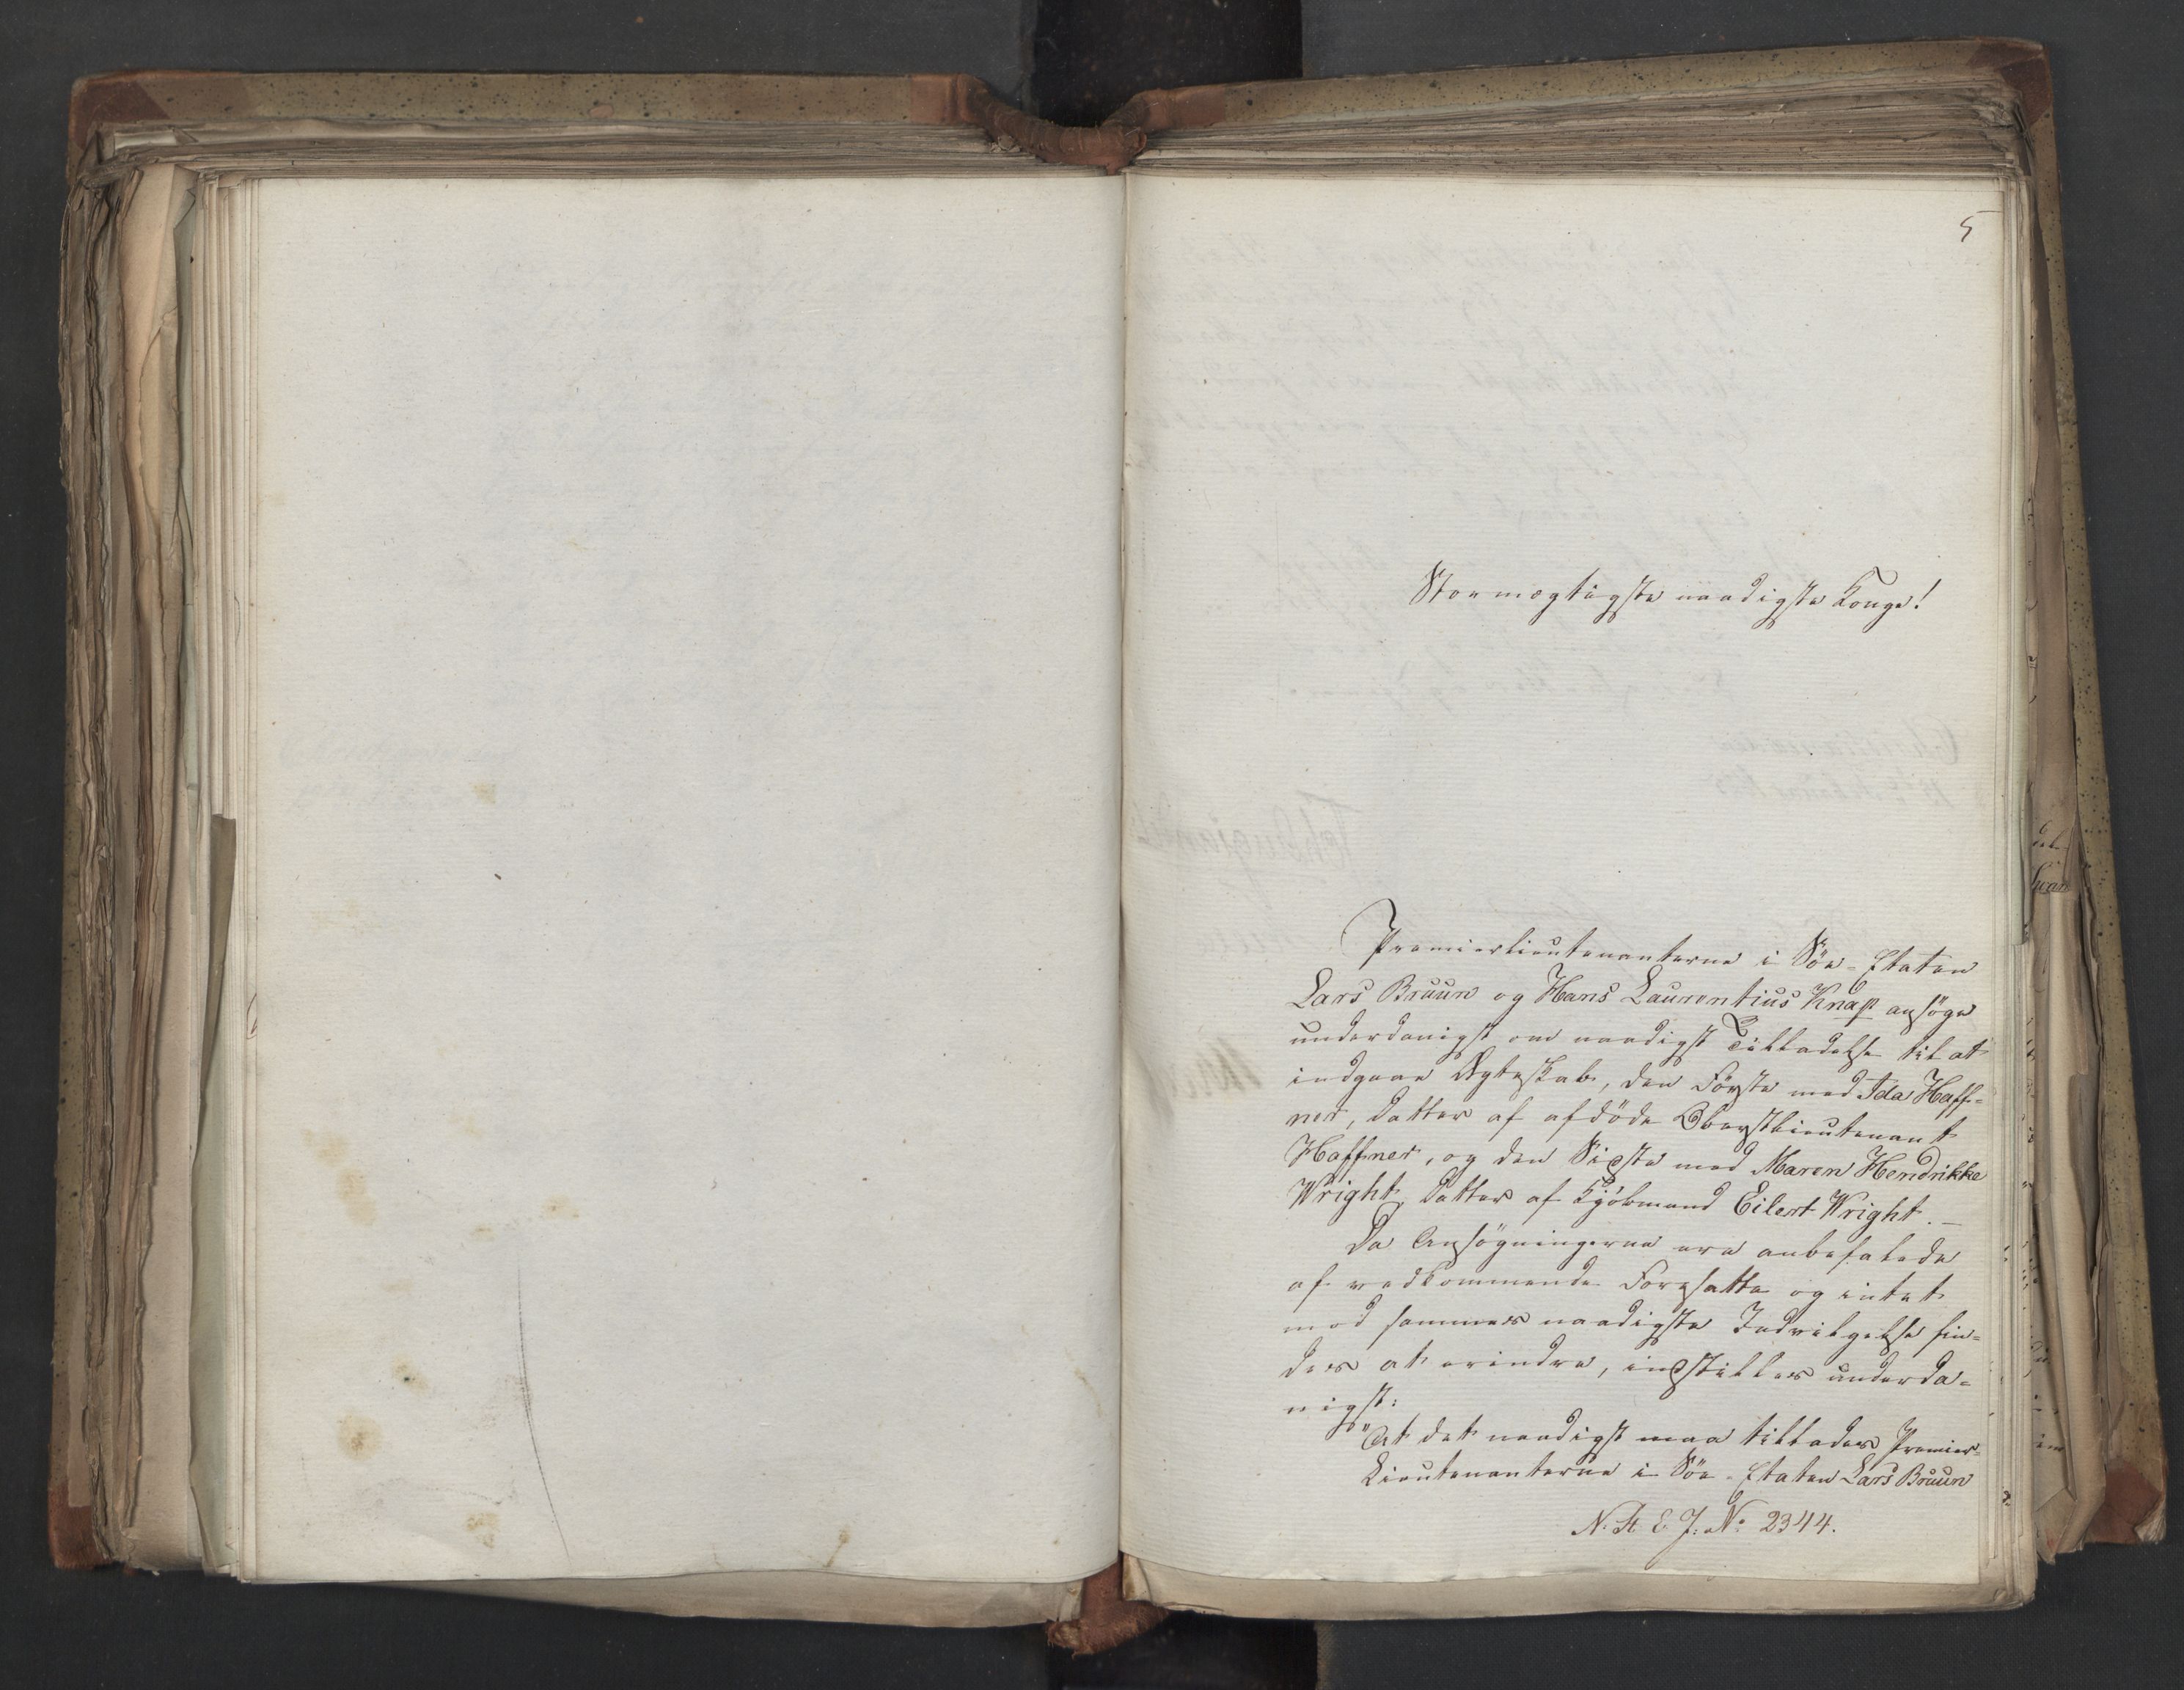 5
Stormægtigste naadigste Konge!
Premierlieutenanterne i Söe-Etaten
Lars Bruun og Hans Laurentius Knap ansöge
underdanigst om naadigst Tilladelse til at
indgaae Ægteskab, den Förste med Ida Haff-
ner, Datter af afdöde Oberstlieutenant
Haffner, og den Sidste med Maren Hendrikke
Wright, Datter af Kjöbmand Eilert Wright. —
Da Ansögningerne ere anbefalede
af vedkommende Foresatte og intet
mod sammes naadigste Indvilgelse fin-
des at erindre, indstilles underda-
nigst:
"At det naadigst maa tillades Premier-
Lieutenanterne i Söe-Etaten Lars Bruun
N. St. E. J: No 2344.